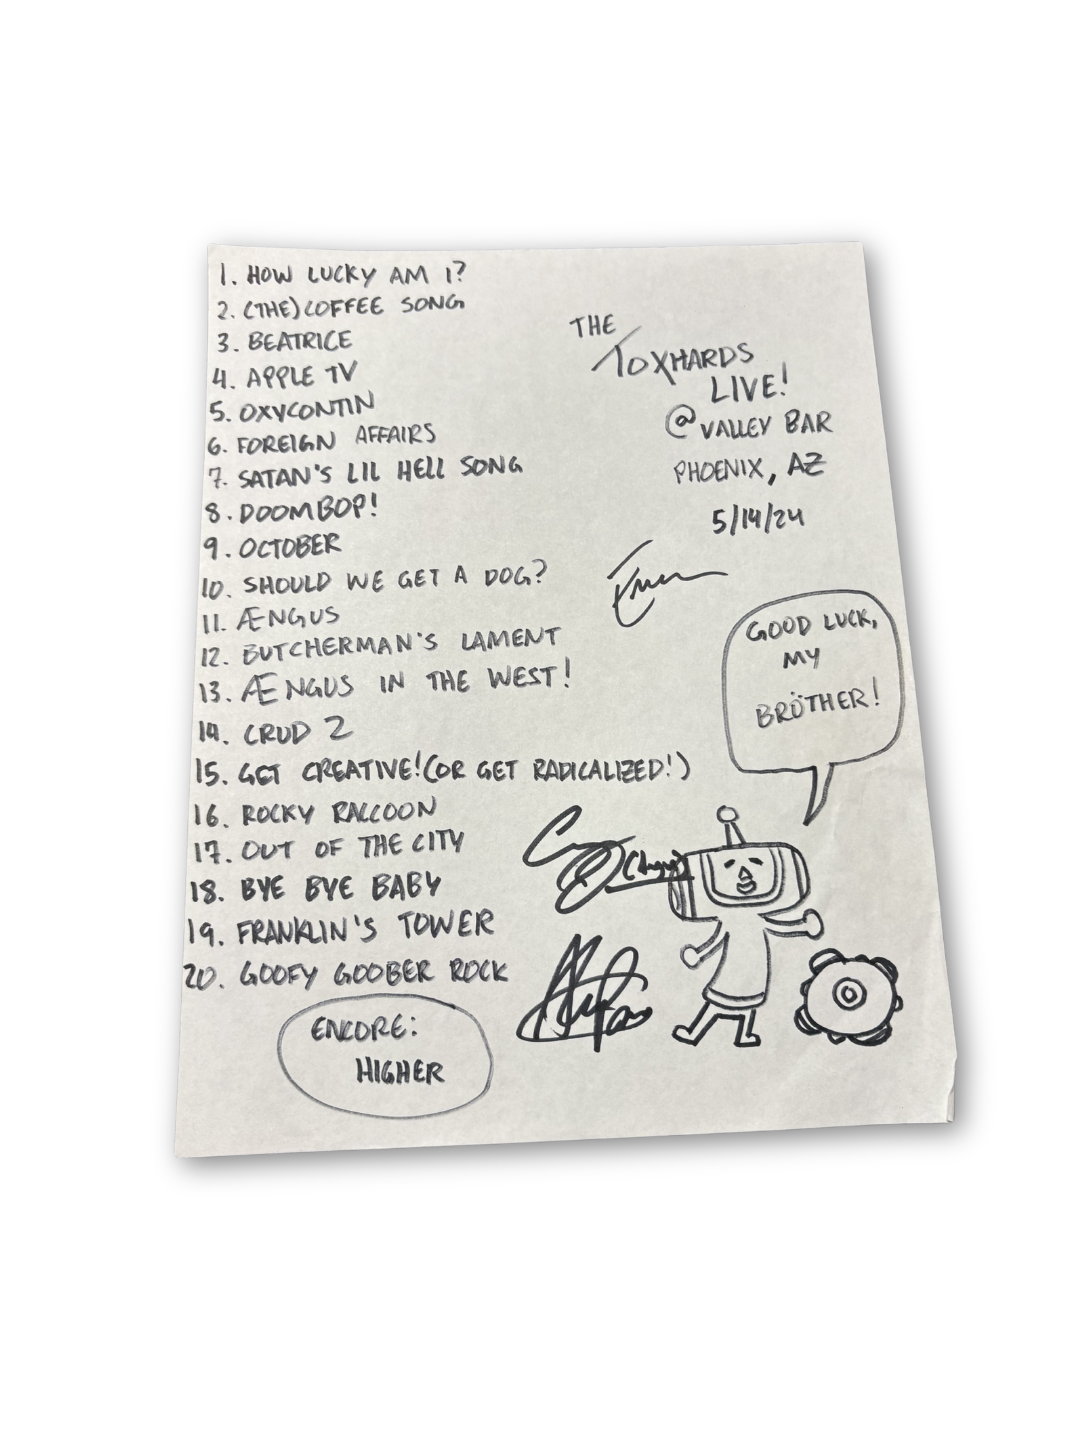 1. HOW LUCKY AM I?
2. (THE) COFFEE SONG
3. BEATRICE
4. APPLE TV
5. OXYCONTIN
6. FOREIGN AFFAIRS
7. SATAN'S LIL HELL SONG
8. DOOMBOP!
9. OCTOBER
10. SHOULD WE GET A DOG?
11. ÆNGUS
12. BUTCHERMAN'S LAMENT
13. ÆNGUS IN THE WEST!
14. CRUD 2
15. GET CREATIVE! (OR GET RADICALIZED!)
16. ROCKY RACCOON
17. OUT OF THE CITY
18. BYE BYE BABY
19. FRANKLIN'S TOWER
20. GOOFY GOOBER ROCK
ENCORE:
HIGHER
THE
TOXHARDS
LIVE!
@ VALLEY BAR
PHOENIX, AZ
5/14/24
GOOD LUCK,
MY
BRÖTHER!